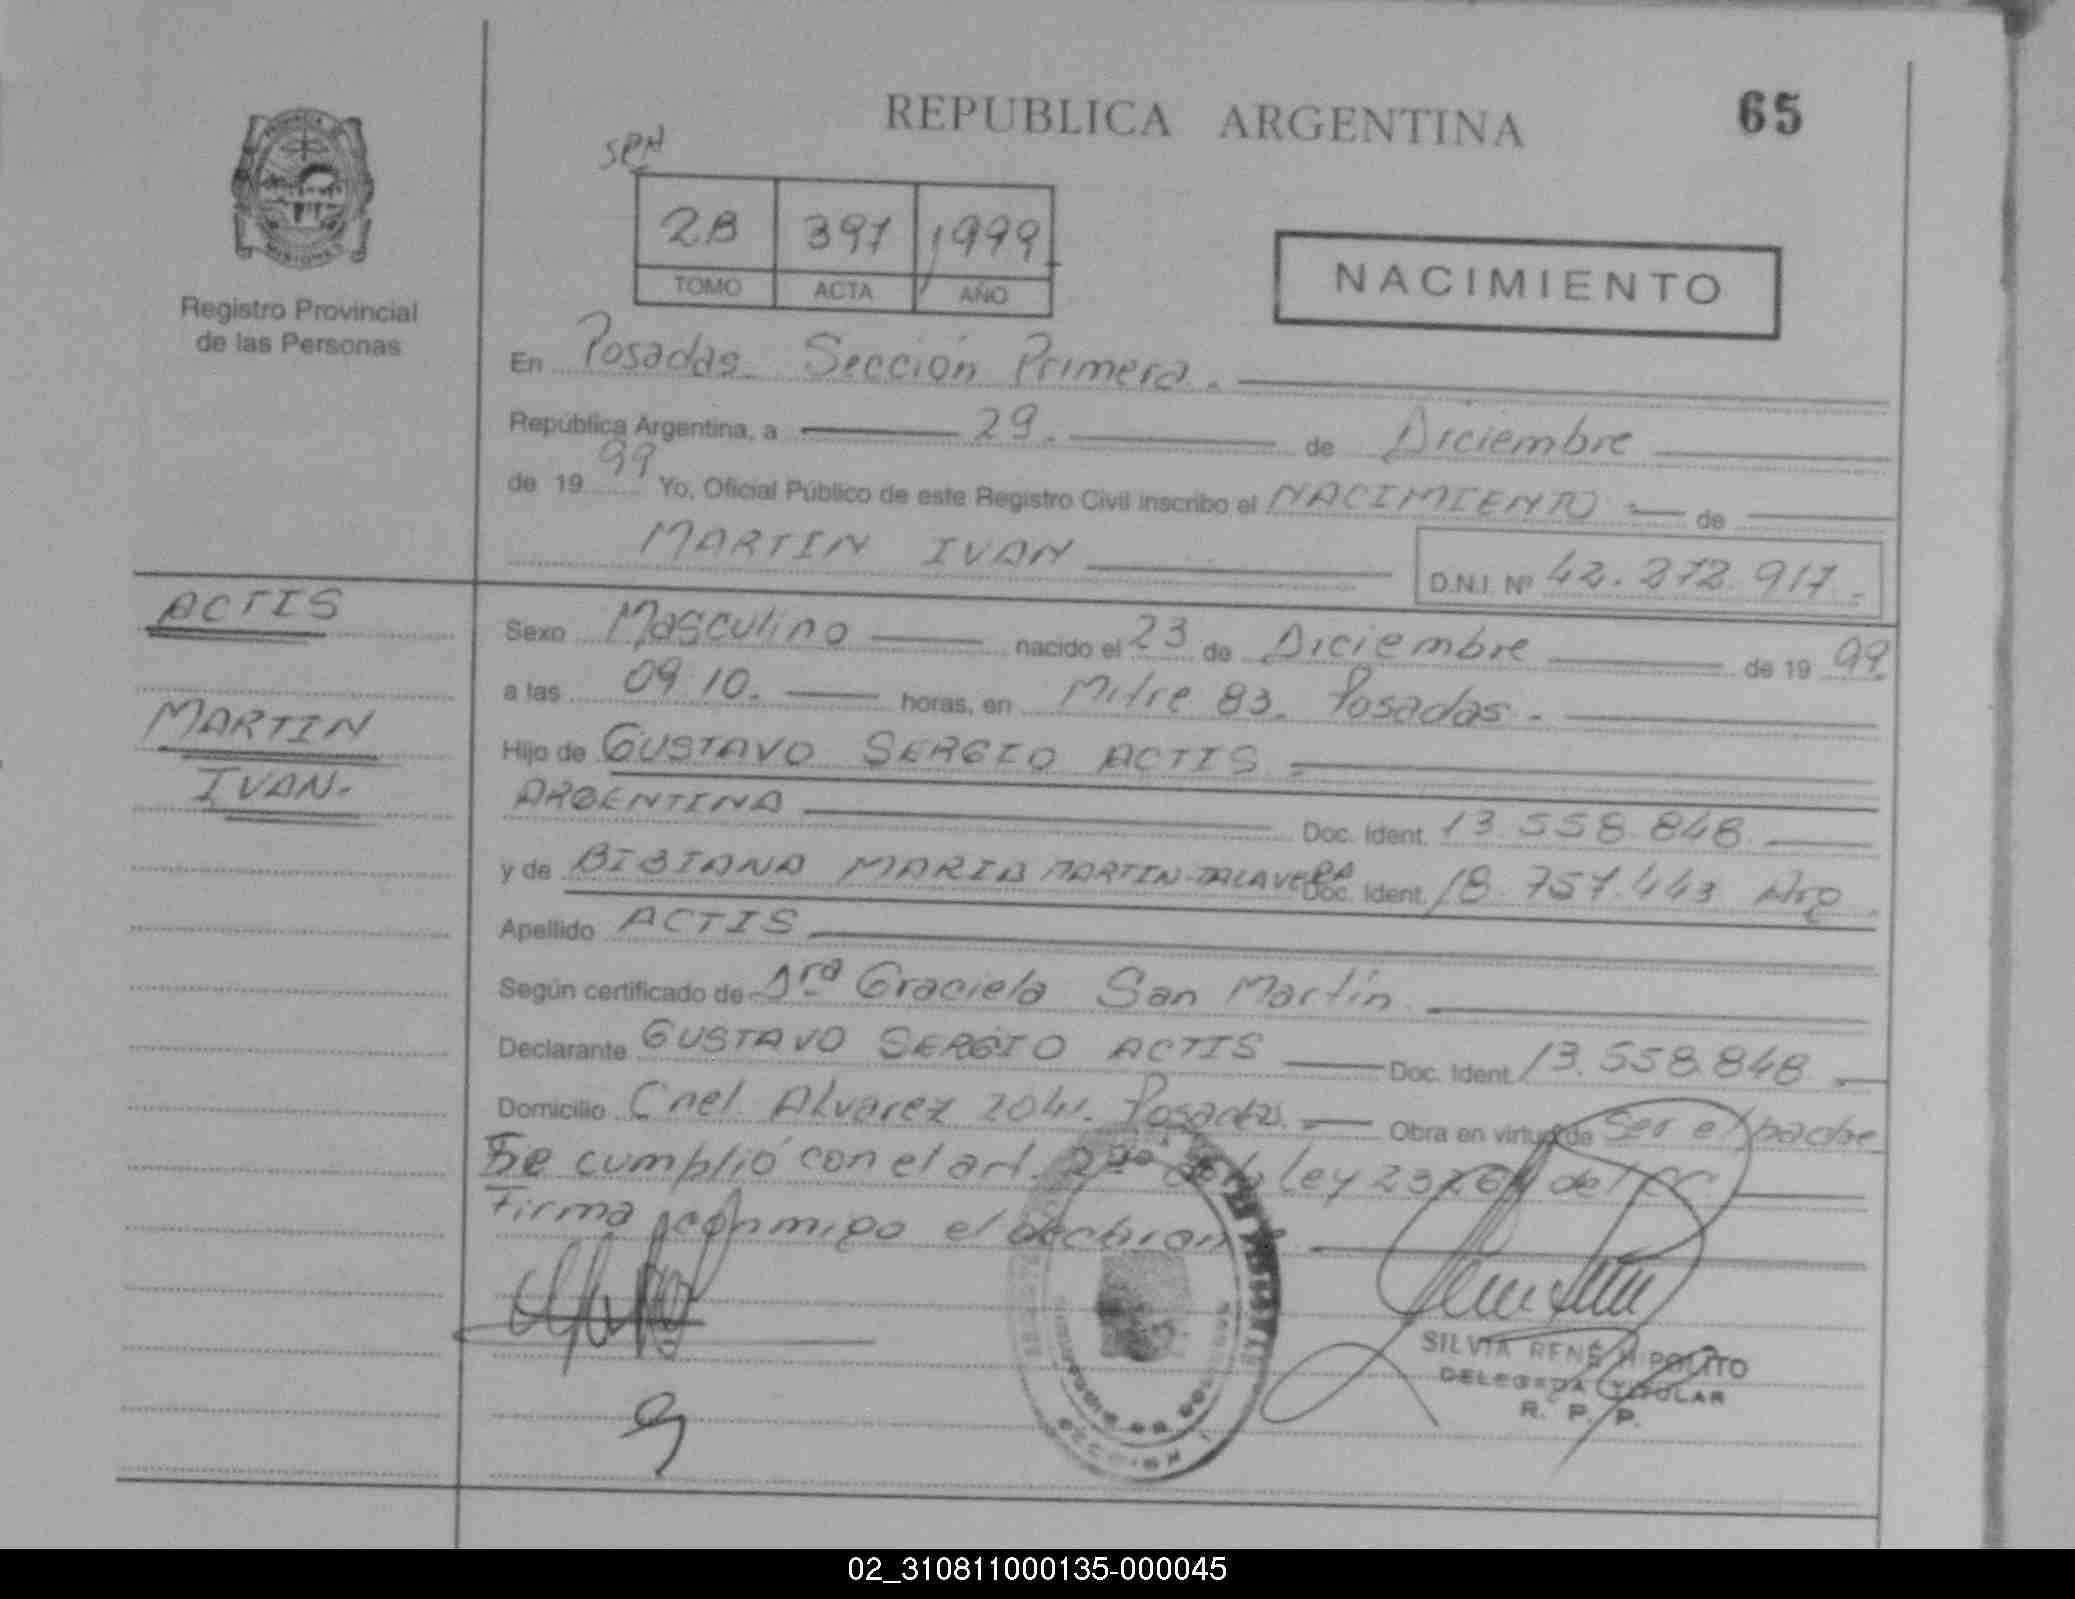 REPUBLICA ARGENTINA
65
2B 397 1999
TOMO ACTA AÑO
NACIMIENTO
Registro Provincial
de las Personas
En Posadas Sección Primera.
República Argentina, a 29. de Diciembre
de 1999 Yo, Oficial Público de este Registro Civil inscribo el NACIMIENTO de
MARTIN IVAN D.N.I. Nº 42.272.917.
ACTIS
MARTIN
IVAN.
Sexo Masculino nacido el 23 de Diciembre de 1999
a las 09.10. horas, en Mitre 83. Posadas.
Hijo de GUSTAVO SERGIO ACTIS
ARGENTINA Doc. Ident. 13.558.848.
y de BIBIANA MARIA MARTIN TALAVERA Doc. Ident. 18.757.443 Arg.
Apellido ACTIS
Según certificado de Dra Graciela San Martín
Declarante GUSTAVO SERGIO ACTIS Doc. Ident. 13.558.848
Domicilio Cnel. Alvarez Posadas Obra en virtud de Ser el padre
Se cumplió con el art. de la ley 23264 del CC
Firma conmigo el
SILVIA RENÉ HIPOLITO
DELEGADA TITULAR
R. P. P.
SECCION 1
02_310811000135-000045